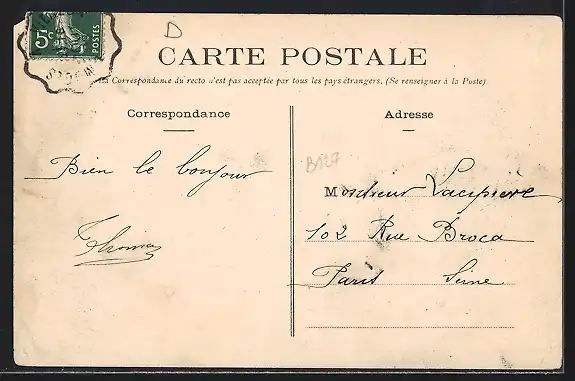 5c POSTES
D
CARTE POSTALE
La Correspondance du recto n'est pas acceptée par tous les pays étrangers. (Se renseigner à la Poste).
Correspondance
Adresse
Bien le bonjour
Thomas
Monsieur Lacipière
102 Rue Broca
Paris Seine